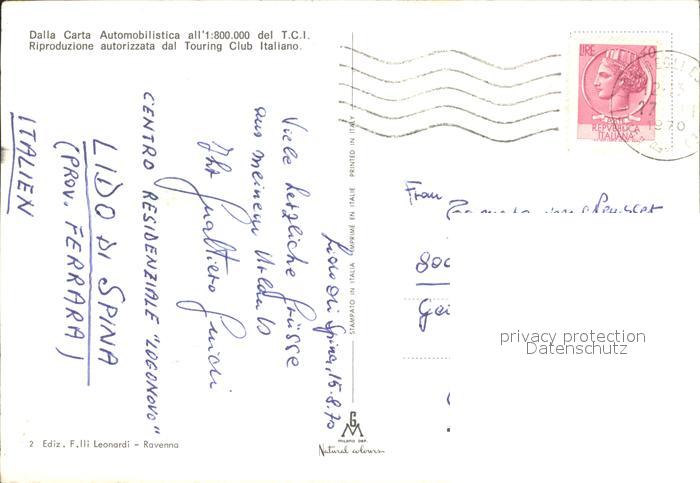 Dalla Carta Automobilistica all'1:800.000 del T.C.I.
Riproduzione autorizzata dal Touring Club Italiano.
Lido di Spina, 15.8.70
Viele herzliche Grüsse
aus meinem Urlaub
Ihr Gualtiero
CENTRO RESIDENZIALE "LOGONOVO"
LIDO DI SPINA
(PROV. FERRARA)
ITALIEN
STAMPATO IN ITALIA IMPRIMÉ EN ITALIE PRINTED IN ITALY
LIRE 40
REPVBBLICA
ITALIANA
1970
Frau
800
privacy protection
Datenschutz
G
M
Natural colours
2 Ediz. F.lli Leonardi - Ravenna